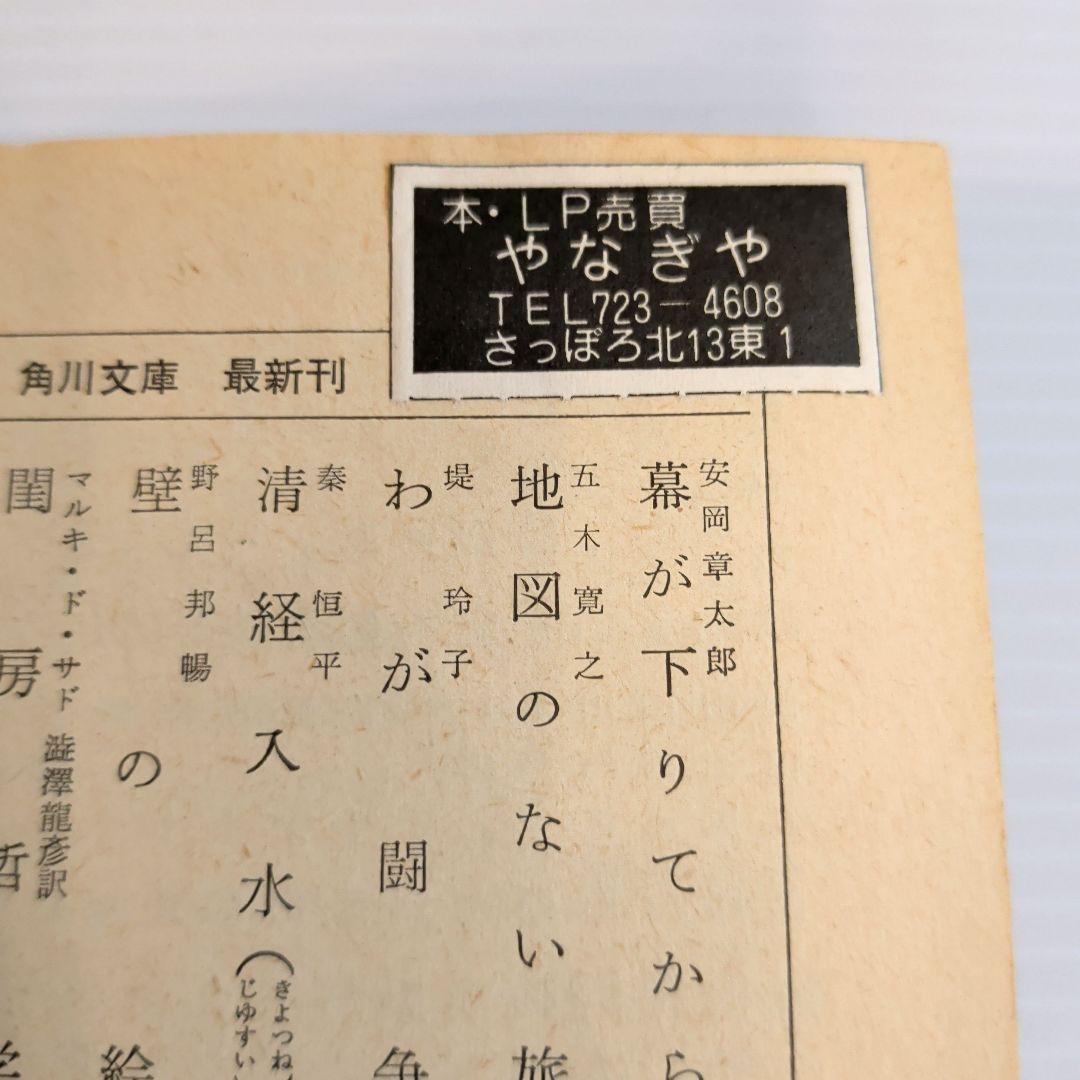 本・LP売買
やなぎや
TEL723－4608
さっぽろ北13東1
角川文庫　最新刊
安岡章太郎
幕が下りてから
五木寛之
地図のない旅
堤　玲子
わが闘争
秦　恒平
清経入水（きよつね
じゅすい
野呂邦暢
壁の絵
マルキ・ド・サド　澁澤龍彦訳
閨房哲学